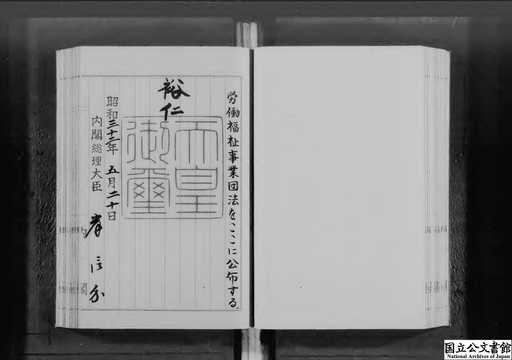 労働福祉事業団法をここに公布する。
裕仁
天皇
御璽
昭和三十二年五月二十日
内閣総理大臣 岸信介
国立公文書館
National Archives of Japan